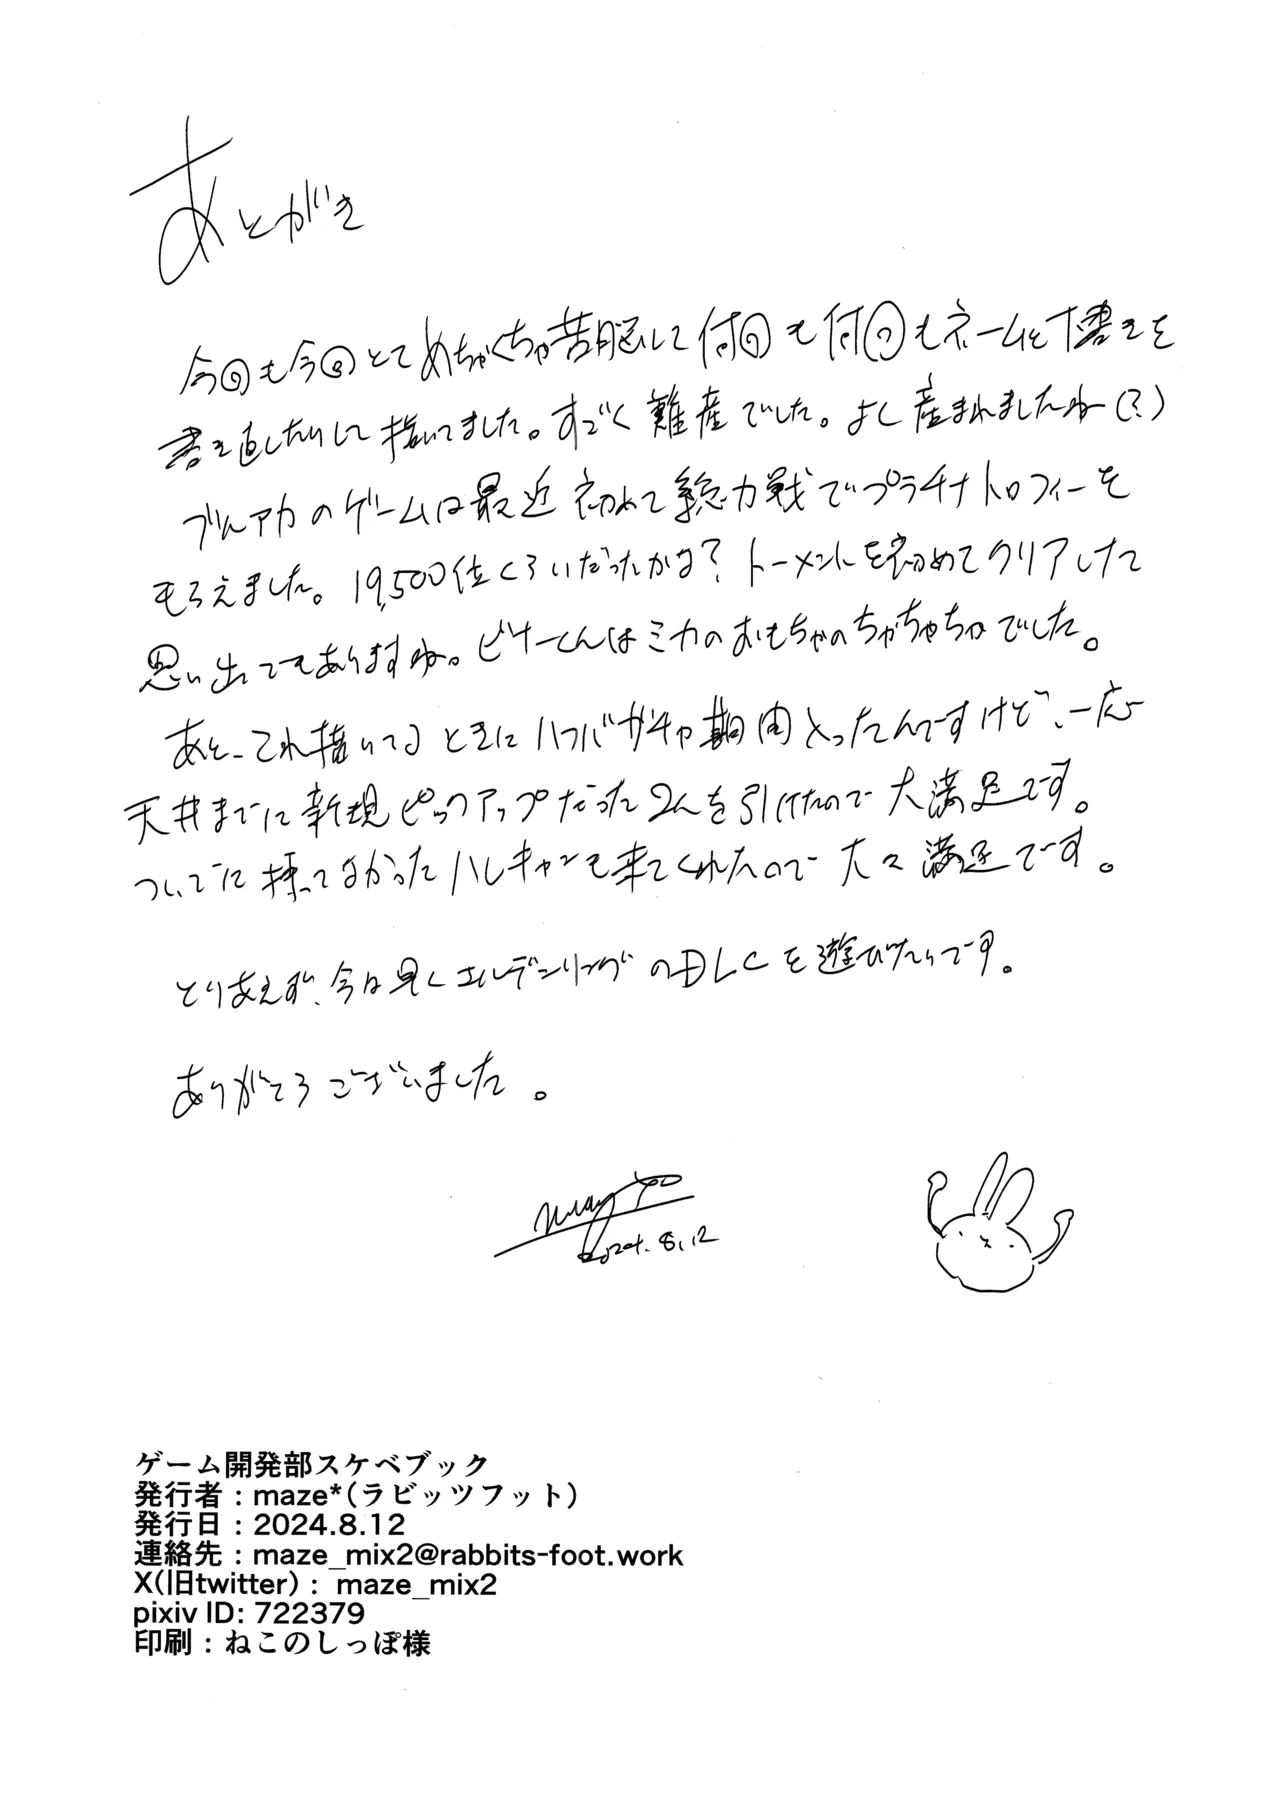 あとがき
今回も今回とてめちゃくちゃ苦悩して何回も何回もネームと下書きを
書き直したりして描いてました。すごく難産でした。よし産まれましたねー(?)
ブルアカのゲームは最近初めて総力戦でプラチナトロフィーを
もらえました。19,500位くらいだったかな?トーメントを初めてクリアしたて
思い出でもありますね。ビナーくんはミカのおもちゃのちゃちゃちゃでした。
あと、これ描いてるときにハフバガチャ期間入ったんですけど、一応
天井までに新規ピックアップだった2人を引けたので大満足です。
ついでに持ってなかったハレキャンも来てくれたので大々満足です。
とりあえず、今は早くエルデンリングのDLCを遊びたいです。
ありがとうございました。
2024.8.12
ゲーム開発部スケベブック
発行者：maze*(ラビッツフット)
発行日：2024.8.12
連絡先：maze_mix2@rabbits-foot.work
X(旧twitter)： maze_mix2
pixiv ID: 722379
印刷：ねこのしっぽ様